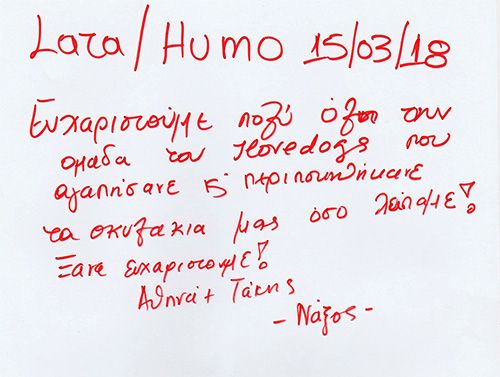 Lara/Humo 15/03/18
Ευχαριστούμε πολύ όλη την
ομάδα του Ilovedogs που
αγαπήσανε & περιποιηθήκανε
τα σκυλάκια μας όσο λείπαμε!
Ξανα ευχαριστουμε!
Αθηνά + Τάκης
- Νάξος -